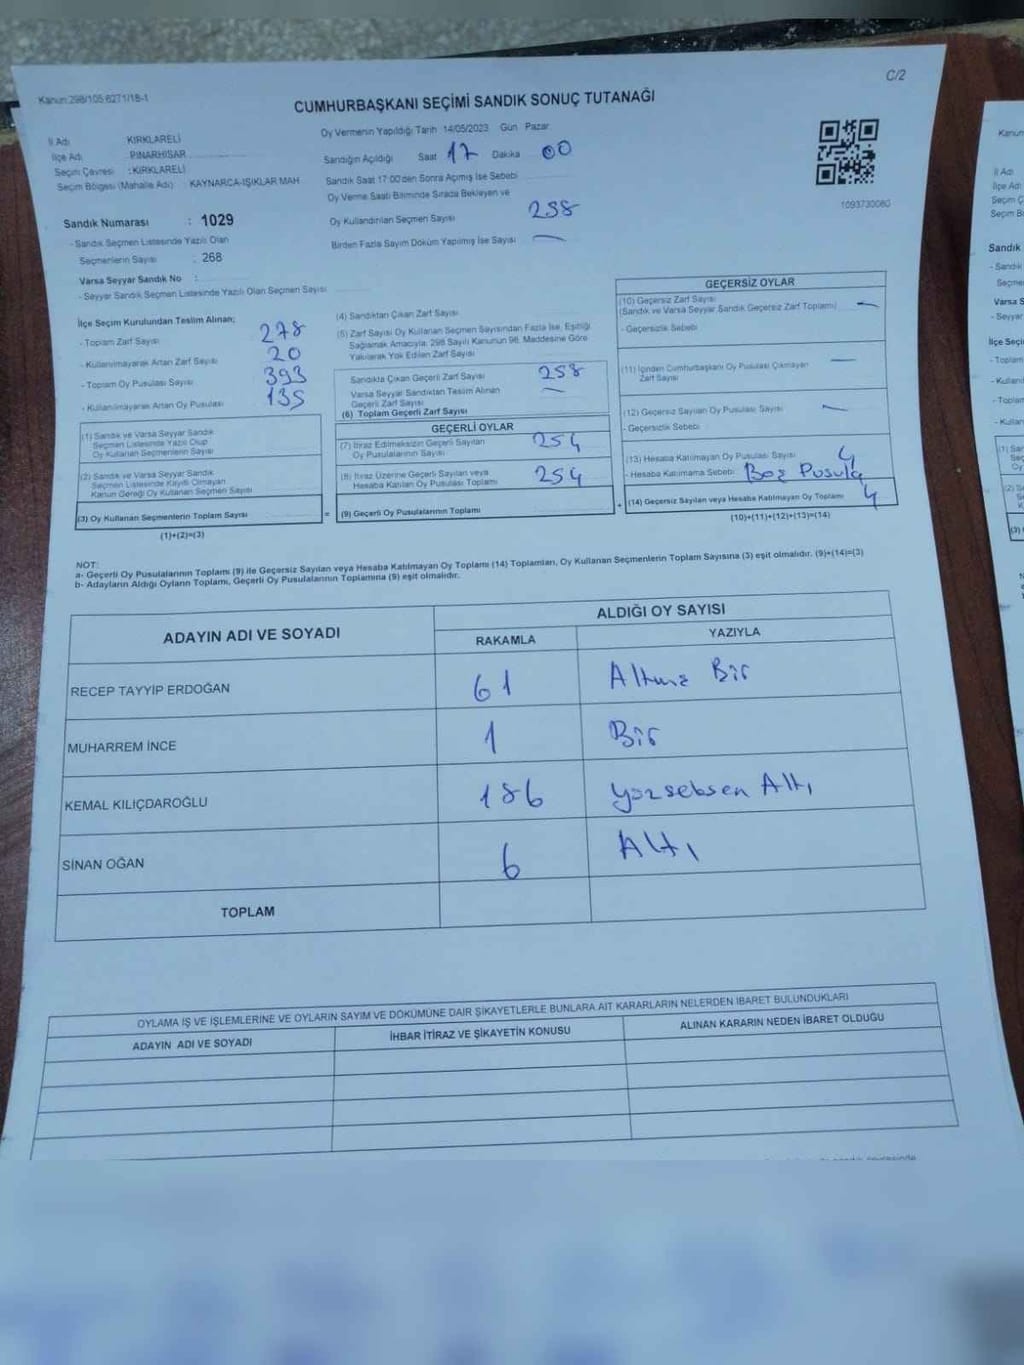 C/2
Kanun:298/105.6271/18-1
CUMHURBAŞKANI SEÇİMİ SANDIK SONUÇ TUTANAĞI
İl Adı : KIRKLARELİ
İlçe Adı : PINARHİSAR
Seçim Çevresi : KIRKLARELİ
Seçim Bölgesi (Mahalle Adı) : KAYNARCA-IŞIKLAR MAH
Oy Vermenin Yapıldığı Tarih 14/05/2023 Gün Pazar
Sandığın Açıldığı Saat 17 Dakika 00
Sandık Saat 17:00'den Sonra Açımış İse Sebebi
Oy Verme Saati Bitiminde Sırada Bekleyen ve
Oy Kullandırılan Seçmen Sayısı 258
Birden Fazla Sayım Döküm Yapılmış İse Sayısı —
1093730060
Sandık Numarası : 1029
- Sandık Seçmen Listesinde Yazılı Olan
Seçmenlerin Sayısı : 268
Varsa Seyyar Sandık No :
- Seyyar Sandık Seçmen Listesinde Yazılı Olan Seçmen Sayısı
İlçe Seçim Kurulundan Teslim Alınan;
- Toplam Zarf Sayısı 278
- Kullanılmayarak Artan Zarf Sayısı 20
- Toplam Oy Pusulası Sayısı 393
- Kullanılmayarak Artan Oy Pusulası 135
(1) Sandık ve Varsa Seyyar Sandık
Seçmen Listesinde Yazılı Olup
Oy Kullanan Seçmenlerin Sayısı
(2) Sandık ve Varsa Seyyar Sandık
Seçmen Listesinde Kayıtlı Olmayan
Kanun Gereği Oy Kullanan Seçmen Sayısı
(3) Oy Kullanan Seçmenlerin Toplam Sayısı
(1)+(2)=(3)
=
(4) Sandıktan Çıkan Zarf Sayısı
(5) Zarf Sayısı Oy Kullanan Seçmen Sayısından Fazla İse, Eşitliği
Sağlamak Amacıyla, 298 Sayılı Kanunun 98. Maddesine Göre
Yakılarak Yok Edilen Zarf Sayısı
Sandıkta Çıkan Geçerli Zarf Sayısı 258
Varsa Seyyar Sandıktan Teslim Alınan
Geçerli Zarf Sayısı —
(6) Toplam Geçerli Zarf Sayısı
GEÇERLİ OYLAR
(7) İtiraz Edilmeksizin Geçerli Sayılan
Oy Pusulalarının Sayısı 254
(8) İtiraz Üzerine Geçerli Sayılan veya
Hesaba Katılan Oy Pusulası Toplamı 254
(9) Geçerli Oy Pusulalarının Toplamı
+
GEÇERSİZ OYLAR
(10) Geçersiz Zarf Sayısı
(Sandık ve Varsa Seyyar Sandık Geçersiz Zarf Toplamı) —
- Geçersizlik Sebebi
(11) İçinden Cumhurbaşkanı Oy Pusulası Çıkmayan
Zarf Sayısı —
(12) Geçersiz Sayılan Oy Pusulası Sayısı —
- Geçersizlik Sebebi
(13) Hesaba Katılmayan Oy Pusulası Sayısı 4
- Hesaba Katılmama Sebebi: Boş Pusula
(14) Geçersiz Sayılan veya Hesaba Katılmayan Oy Toplamı 4
(10)+(11)+(12)+(13)=(14)
NOT:
a- Geçerli Oy Pusulalarının Toplamı (9) ile Geçersiz Sayılan veya Hesaba Katılmayan Oy Toplamı (14) Toplamları, Oy Kullanan Seçmenlerin Toplam Sayısına (3) eşit olmalıdır. (9)+(14)=(3)
b- Adayların Aldığı Oyların Toplamı, Geçerli Oy Pusulalarının Toplamına (9) eşit olmalıdır.
ADAYIN ADI VE SOYADI
ALDIĞI OY SAYISI
RAKAMLA YAZIYLA
RECEP TAYYİP ERDOĞAN 61 Altmış Bir
MUHARREM İNCE 1 Bir
KEMAL KILIÇDAROĞLU 186 Yüzseksen Altı
SİNAN OĞAN 6 Altı
TOPLAM
OYLAMA İŞ VE İŞLEMLERİNE VE OYLARIN SAYIM VE DÖKÜMÜNE DAİR ŞİKAYETLERLE BUNLARA AİT KARARLARIN NELERDEN İBARET BULUNDUKLARI
ADAYIN ADI VE SOYADI
İHBAR İTİRAZ VE ŞİKAYETİN KONUSU
ALINAN KARARIN NEDEN İBARET OLDUĞU